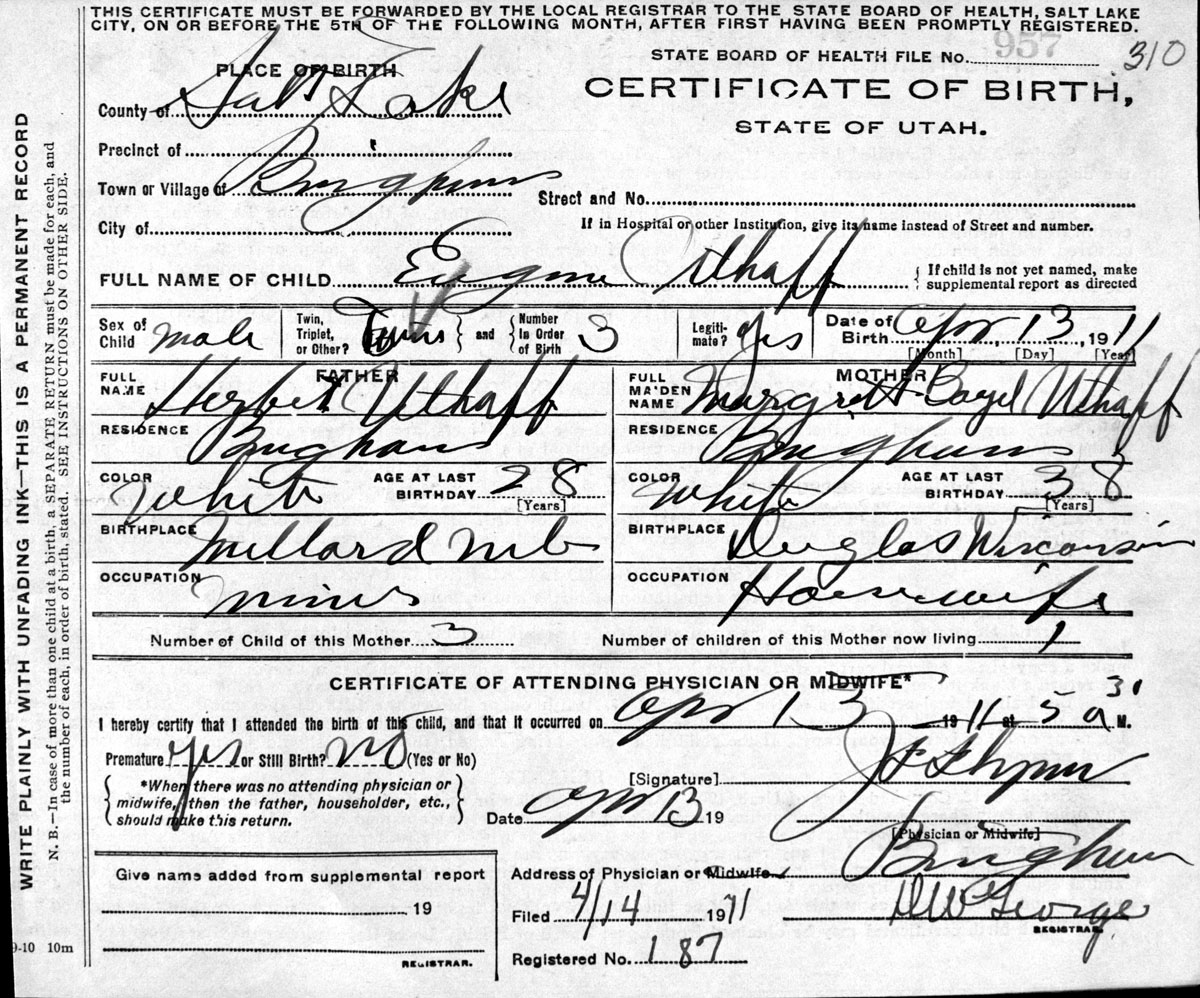 THIS CERTIFICATE MUST BE FORWARDED BY THE LOCAL REGISTRAR TO THE STATE BOARD OF HEALTH, SALT LAKE
CITY, ON OR BEFORE THE 5TH OF THE FOLLOWING MONTH, AFTER FIRST HAVING BEEN PROMPTLY REGISTERED.
WRITE PLAINLY WITH UNFADING INK—THIS IS A PERMANENT RECORD
N. B.—In case of more than one child at a birth, a SEPARATE RETURN must be made for each, and
the number of each, in order of birth, stated. SEE INSTRUCTIONS ON OTHER SIDE.
STATE BOARD OF HEALTH FILE No. 957 310
CERTIFICATE OF BIRTH,
STATE OF UTAH.
PLACE OF BIRTH
County of Salt Lake
Precinct of
Town or Village of Bingham
City of
Street and No.
If in Hospital or other Institution, give its name instead of Street and number.
FULL NAME OF CHILD Eugene Uthaff { If child is not yet named, make
supplemental report as directed
Sex of Child male
Twin, Triplet, or Other? Twins and Number In Order of Birth 3
Legitimate? Yes
Date of Birth Apr 13, 1911
[Month] [Day] [Year]
FATHER
FULL NAME Herbert Uthaff
RESIDENCE Bingham
COLOR White AGE AT LAST BIRTHDAY 28
[Years]
BIRTHPLACE Millard Neb
OCCUPATION
MOTHER
FULL MAIDEN NAME Margret Boyd Uthaff
RESIDENCE Bingham
COLOR White AGE AT LAST BIRTHDAY 38
[Years]
BIRTHPLACE Douglas Wisconsin
OCCUPATION Housewife
Number of Child of this Mother 3 Number of children of this Mother now living 1
CERTIFICATE OF ATTENDING PHYSICIAN OR MIDWIFE*
I hereby certify that I attended the birth of this child, and that it occurred on Apr 13 1911 at 5 30 a M.
Premature yes or Still Birth? no (Yes or No)
*When there was no attending physician or
midwife, then the father, householder, etc.,
should make this return.
[Signature]
Date Apr 13 19
[Physician or Midwife]
Address of Physician or Midwife Bingham
Give name added from supplemental report
19
REGISTRAR.
Filed 4/14 1911 George
REGISTRAR.
Registered No. 187
9-10 10m